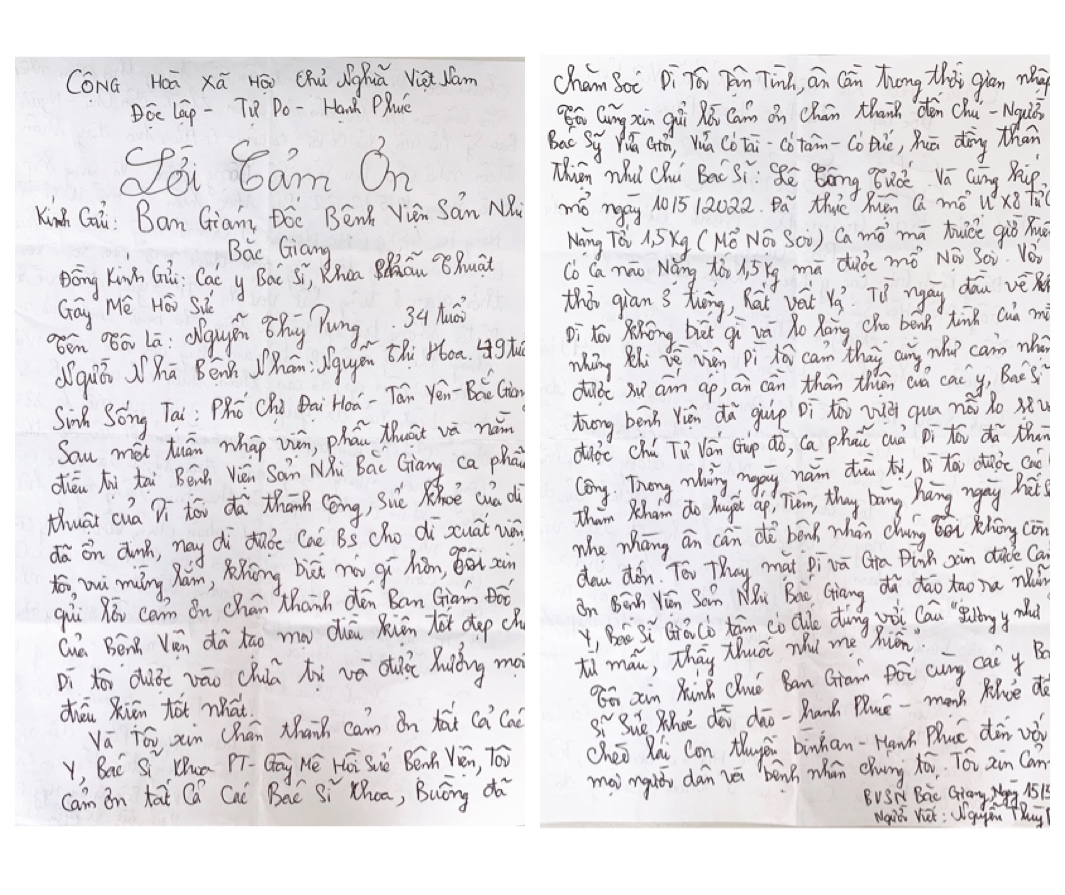 CÔNG Hoà Xã Hội Chủ Nghĩa Việt Nam
Độc Lập - Tự Do - Hạnh Phúc
Lời Cảm Ơn
Kính Gửi: Ban Giám Đốc Bệnh Viện Sản Nhi
Bắc Giang
Đồng Kính Gửi: Các y Bác Sĩ, Khoa Phẫu Thuật
Gây Mê Hồi Sức
Tên Tôi Là: Nguyễn Thùy Dung. 34 tuổi
Người Nhà Bệnh Nhân: Nguyễn Thị Hoa. 49 tuổ
Sinh Sống Tại: Phố Chợ Đại Hoá - Tân Yên - Bắc Giang
Sau một tuần nhập viện, phẫu thuật và nằm
điều trị tại Bệnh Viện Sản Nhi Bắc Giang ca phẫu
thuật của Dì tôi đã thành Công, Sức khoẻ của dì
đã ổn định, nay dì được Các Bs cho dì xuất viện
tôi vui mừng lắm, không biết nói gì hơn, Tôi xin
gửi lời cảm ơn chân thành đến Ban Giám Đốc
Của Bệnh Viện đã tạo mọi điều kiện tốt đẹp ch
Dì tôi được vào chữa trị và được hưởng mọi
điều kiện tốt nhất.
Và Tôi xin chân thành cảm ơn tất cả Các
Y, Bác Sĩ Khoa PT - Gây Mê Hồi Sức Bệnh Viện, Tôi
Cảm ơn tất Cả Các Bác Sĩ Khoa, Buồng đã
Chăm Sóc Dì Tôi Tận Tình, ân Cần trong thời gian nhập
Tôi Cũng xin gửi lời Cảm ơn Chân thành đến Chú - Người
Bác Sỹ Vừa Giỏi, Vừa Có Tài - Có tâm - Có Đức, hòa đồng thân
thiện như chú Bác Sĩ: Lê Công Tước. Và Cùng kíp
mổ ngày 10/5/2022. Đã thực hiện Ca mổ U Xơ Tử C
Nặng Tới 1,5kg (Mổ Nội Soi) Ca mổ mà trước giờ hiế
Có Ca nào Nặng tới 1,5kg mà được mổ Nội Soi. Với
thời gian 3 tiếng, Rất vất Vả. Từ ngày đầu về kh
Dì tôi không biết gì và lo lắng cho bệnh tình của m
nhưng khi về viện Dì tôi cảm thấy cũng như cảm nhận
được sự ấm áp, ân cần thân thiện của các y, Bác Sĩ
trong bệnh Viện đã giúp Dì tôi vượt qua nỗi lo sợ v
được chú Tư Vấn Giúp đỡ, Ca phẫu của Dì tôi đã thàn
Công. Trong những ngày nằm điều trị, Dì tôi được các
thăm khám đo huyết áp, Tiêm, thay băng hàng ngày hết s
nhẹ nhàng ân cần để bệnh nhân chúng Tôi không còn
đau đớn. Tôi Thay mặt Dì và Gia Đình xin được Cảm
ơn Bệnh Viện Sản Nhi Bắc Giang đã đào tạo ra nhữn
Y, Bác Sĩ Giỏi Có tâm có đức đúng với Câu "Lương y như
từ mẫu, thầy thuốc như mẹ hiền."
Tôi xin kính chúc Ban Giám Đốc cùng các y Bá
Sĩ Sức khoẻ dồi dào - hạnh Phúc - mạnh khoẻ để
chèo lái con thuyền bình an - Hạnh Phúc đến với
mọi người dân và bệnh nhân chúng tôi. Tôi xin Cảm
BVSN Bắc Giang, Ngày 15/5
Người Viết: Nguyễn Thùy